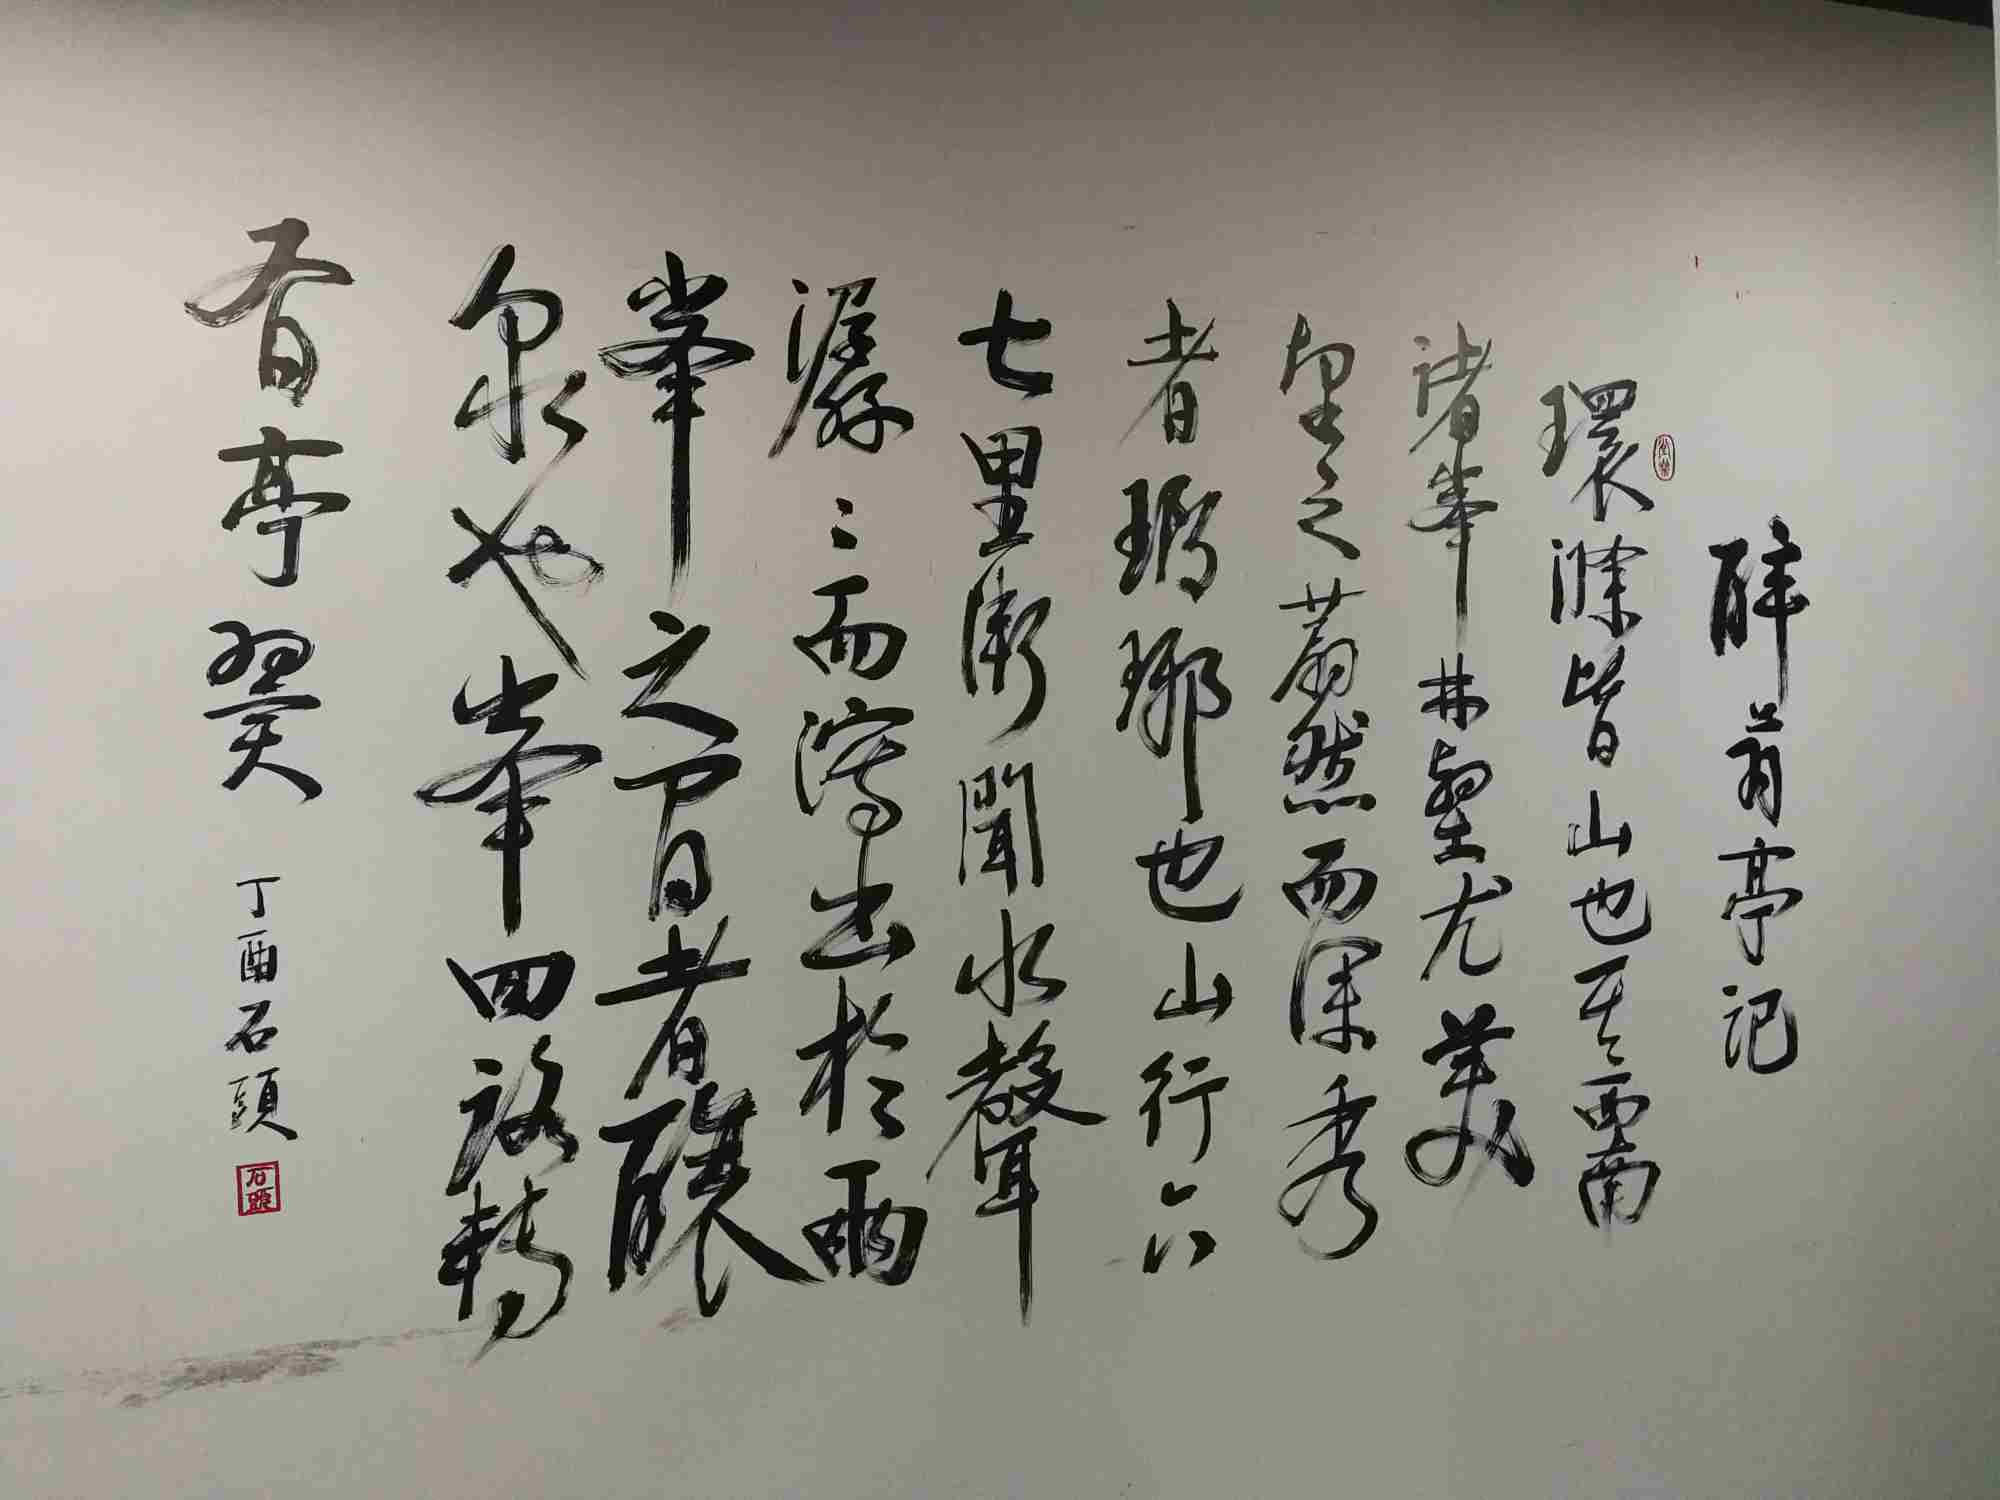 醉翁亭記
環滁皆山也其西南
諸峯林壑尤美
望之蔚然而深秀
者瑯琊也山行六
七里漸聞水聲
潺〻而瀉出於兩
峯之間者釀
泉也峯回路轉
有亭翼
丁酉石頭
石頭